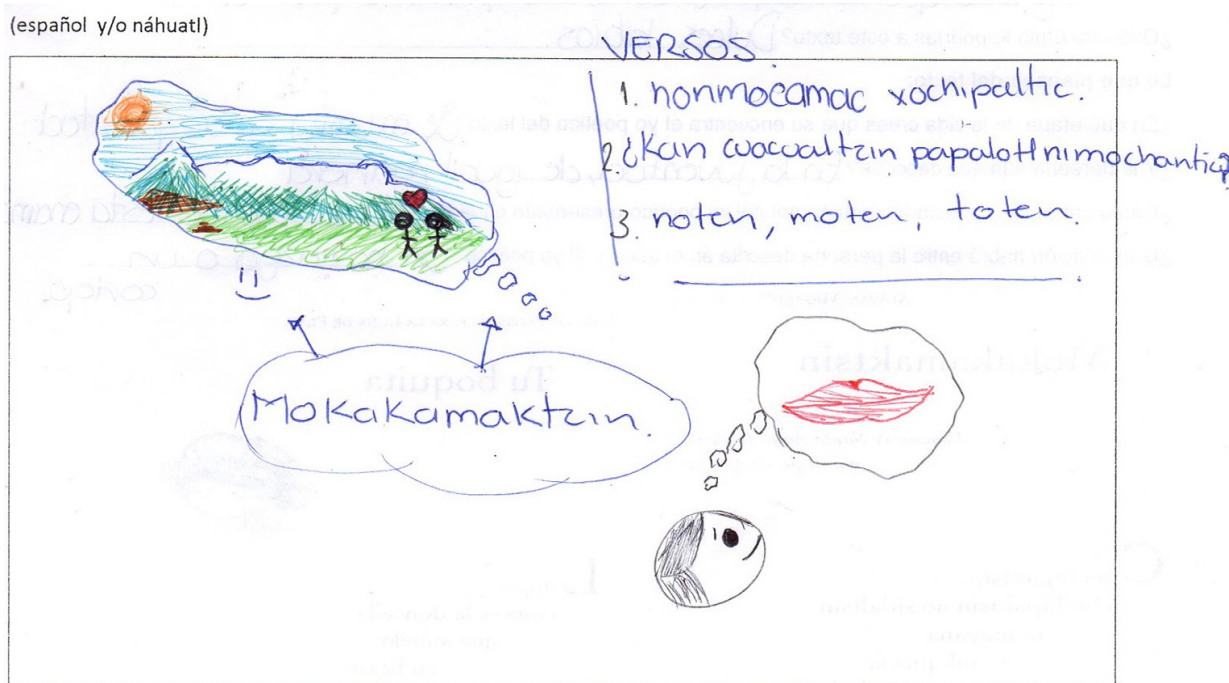 (español y/o náhuatl)
VERSOS.
1. nonmocamac xochipaltic.
2. ¿Kan cuacualtzin papalotl nimochantia?
3. noten, moten, toten.
Mokakamaktzin.